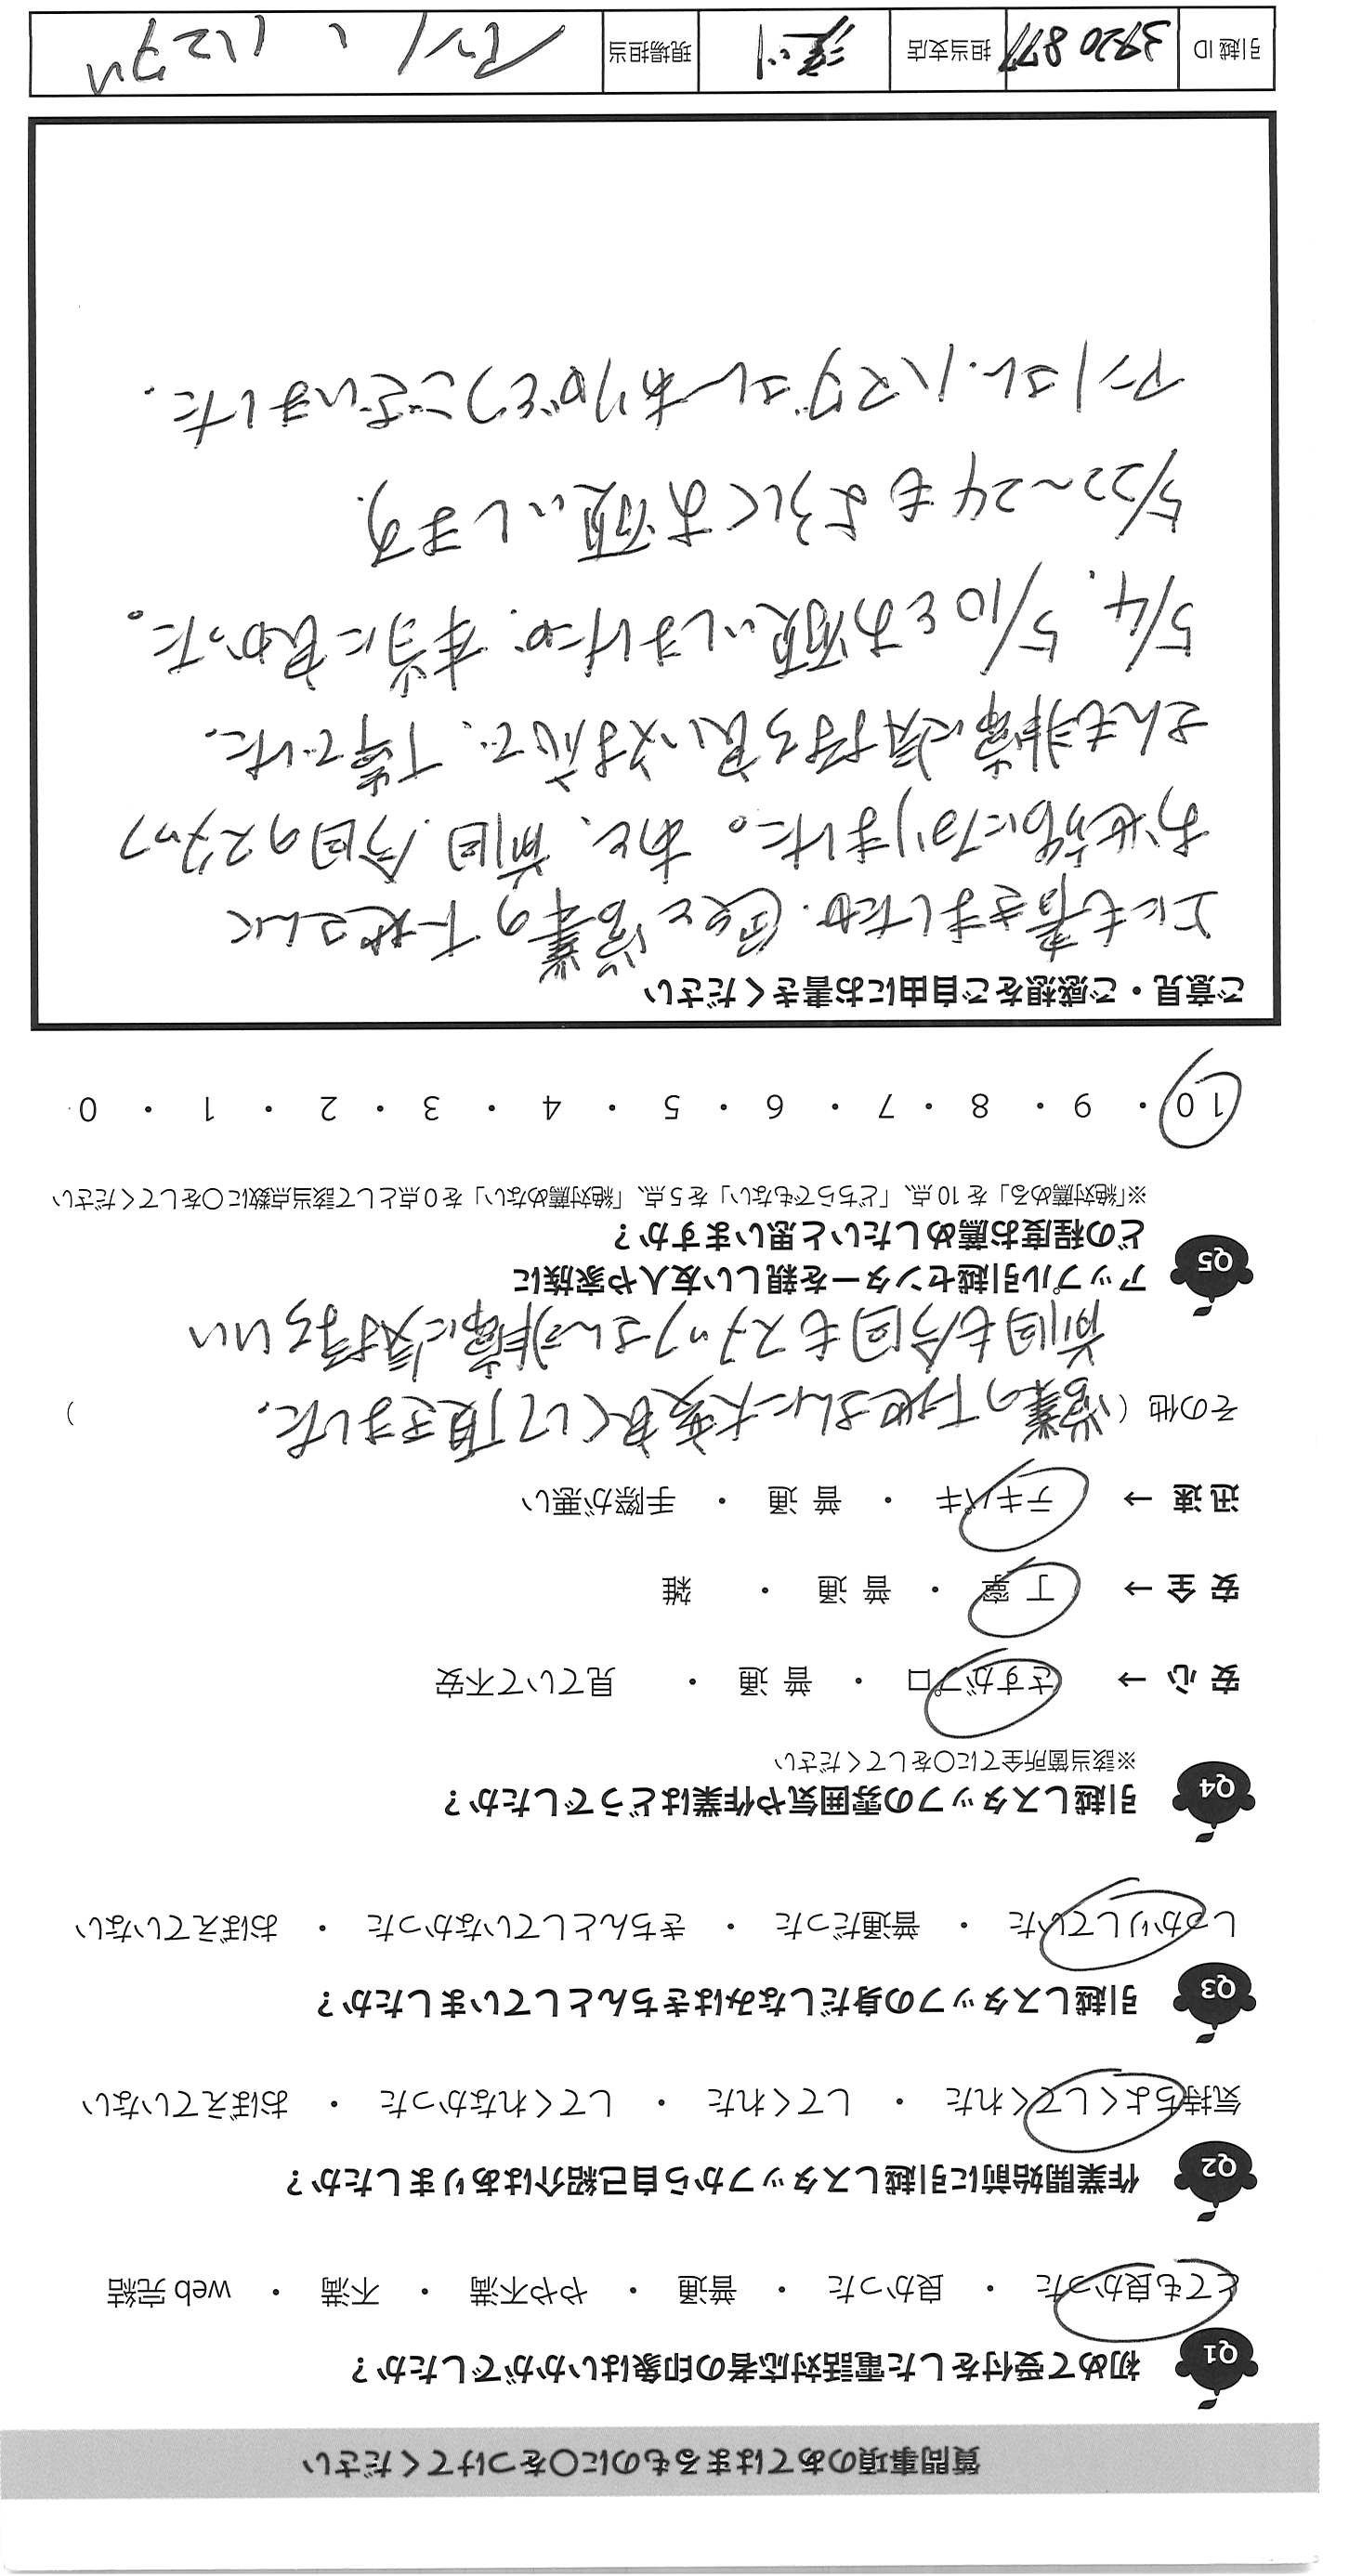 質問事項のあてはまるものに○をつけてください
Q1 初めて受付をした電話対応者の印象はいかがでしたか？
とても良かった ・ 良かった ・ 普通 ・ やや不満 ・ 不満 ・ web 完結
Q2 作業開始前に引越しスタッフから自己紹介はありましたか？
気持ちよくしてくれた ・ してくれた ・ してくれなかった ・ おぼえていない
Q3 引越しスタッフの身だしなみはきちんとしていましたか？
しっかりしていた ・ 普通だった ・ きちんとしていなかった ・ おぼえていない
Q4 引越しスタッフの雰囲気や作業はどうでしたか？
※該当箇所全てに○をしてください
安 心 → さすがプロ ・ 普 通 ・ 見ていて不安
安 全 → 丁 寧 ・ 普 通 ・ 雑
迅 速 → テキパキ ・ 普 通 ・ 手際が悪い
その他（営業の下地さんに大変良くして頂きました。）
前回も今回もスタッフさん非常に気持ちいい
Q5 アップル引越センターを親しい友人や家族に
どの程度お薦めしたいと思いますか？
※「絶対薦める」を 10 点、「どちらでもない」を 5 点、「絶対薦めない」を 0 点として該当点数に○をしてください
10 ・ 9 ・ 8 ・ 7 ・ 6 ・ 5 ・ 4 ・ 3 ・ 2 ・ 1 ・ 0
ご意見・ご感想をご自由にお書きください
上にも書きましたが、営業の下地さんに
お世話になりました。あと、前回、今回のスタッフ
さんも非常に気持ち良い対応で、丁寧でした。
5/4、5/10とお願いしましたが、本当に良かった。
5/22〜24もよろしくお願いします。
アンノさん、ハマダさんありがとうございました。
引越 ID 3920877 担当支店 現場担当